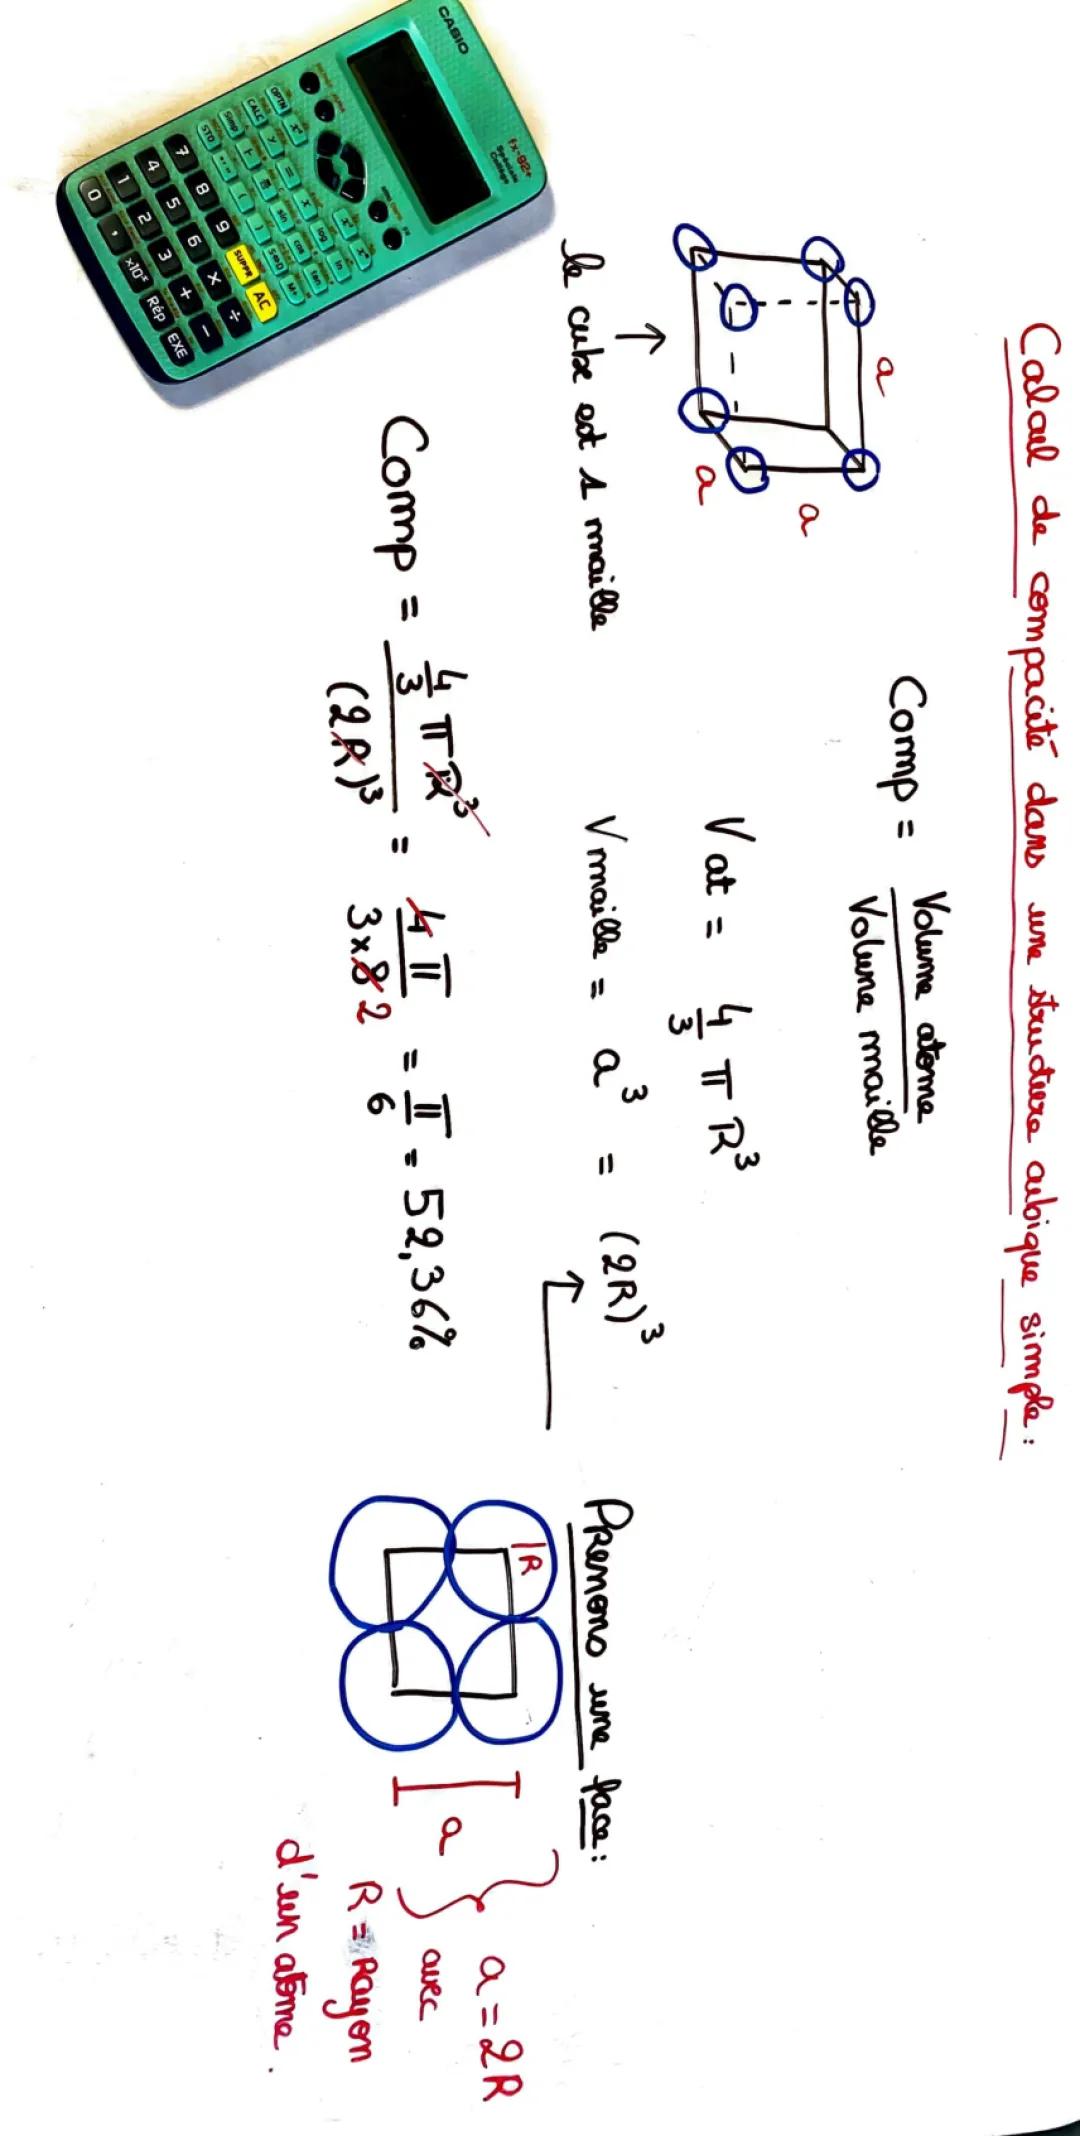 Calcul de compacité dans une structure cubique simple :
Comp = Volume atome / Volume maille
a
a
a
le cube est 1 maille
V at = 4/3 π R³
V maille = a³ = (2R)³
Comp = (4/3 π R³) / (2R)³ = 4π / (3x8) 2 = π/6 = 52,36%
Prenons une face :
R
a
a = 2R
avec
R = Rayon
d'un atome.
CASIO
fx-92+
Spéciale
Collège
OPTN
CALC
Simp
STO
sin
cos
tan
log
ln
S⇔D
M+
7 8 9 SUPPR AC
4 5 6 × ÷
1 2 3 + −
0 , x10ˣ Rép EXE